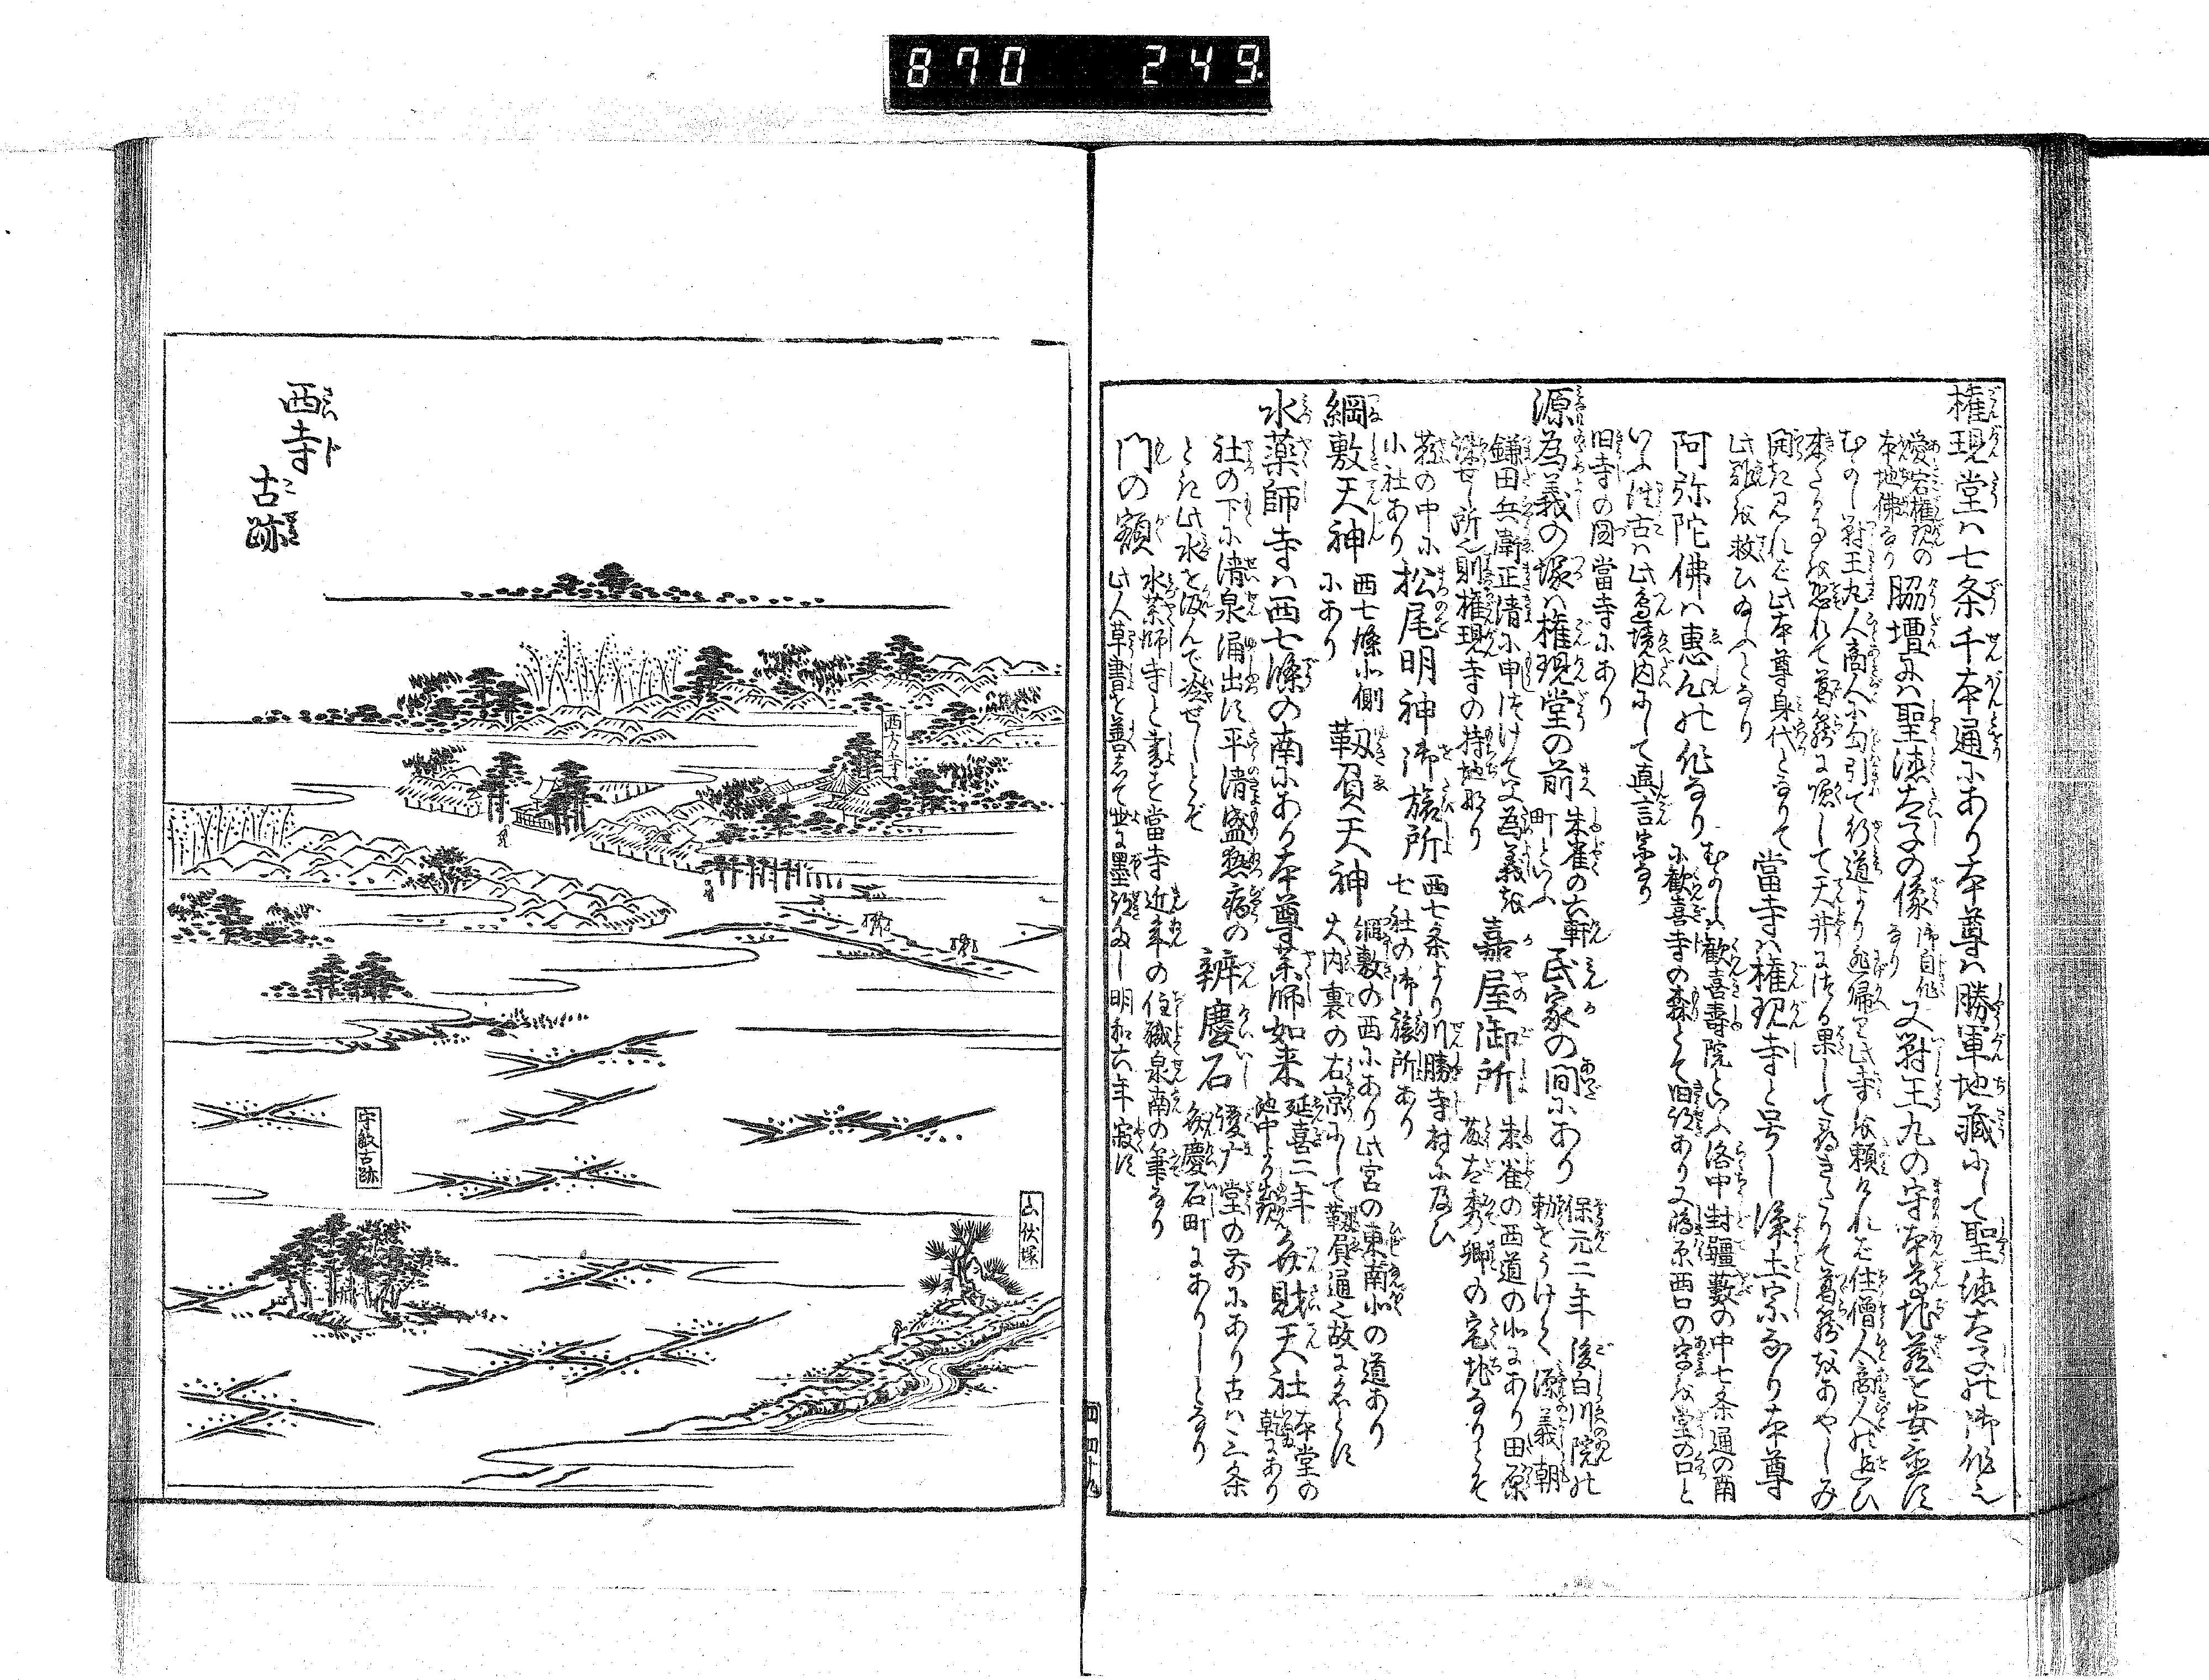 870 249
権現堂ハ七条千本通にあり本尊ハ勝軍地蔵にして聖徳太子の御作也
愛宕権現の本地佛なり 脇壇にハ聖徳太子の像 御自作なり 又対王丸の守本尊地蔵を安置す
むかし対王丸人商人に勾引て行道より迯帰り此寺を頼けれバ住僧人商人の追ひ
来らるを恐れて葛籠に隠して天井につる果して尋きたりて葛籠をあやしみ
開き見れバ此本尊身代となりて
此難を救ひ給ふとなり
當寺ハ権現寺と号し浄土宗なり本尊
阿弥陀佛ハ惠心の作なり むかしハ歓喜壽院といふ洛中封疆藪の中七条通の南に歓喜寺の森とて旧跡あり又嶋原西口の字を堂の口と
いふ往古ハ此邊境内にして真言宗なり
旧寺の図當寺にあり
源為義の塚ハ権現堂の前 朱雀の六軒町といふ 民家の間にあり 保元二年後白川院の勅をうけて源義朝
鎌田兵衛正清に申つけて父為義を
害せし所也則権現寺の持地なり
嘉屋御所 朱雀の西道の北にあり田原藤太秀郷の宅地なりとぞ
藪の中に
小社あり
松尾明神御旅所 西七条より川勝寺村に及ひ七社の御旅所あり
綱敷天神 西七條北側にあり 靱負天神 綱敷の西にあり此宮の東南北の道あり大内裏の右京にして靱負通也故に名とす
水薬師寺ハ西七條の南にあり本尊薬師如来 延喜二年池中より出現 弁財天社 本堂の乾にあり
社の下に清泉涌出す平清盛熱病の
とき此水を汲んで冷せしとぞ
辨慶石 後戸堂の前にあり古ハ三条弁慶石町にありしとなり
門の額 水薬師寺と書す當寺近年の住職泉南の筆なり
此人草書を善して世に墨跡多し明和六年寂す
四 四十九
西寺
古跡
西方寺
守敏古跡
山伏塚